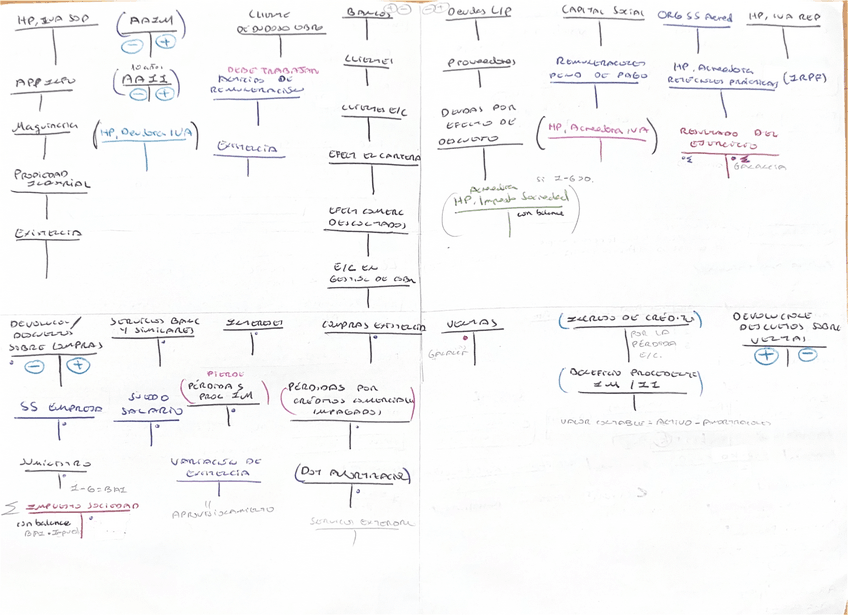 HP, IVA SOP
(AAIM)
- +
CLIENTE
DE DUDOSO COBRO
BANCOS
+ -
- +
Deudas L/P
CAPITAL SOCIAL
ORG SS Acred
HP, IVA REP
10 años
(AAII)
- +
APP INFO
DEBE TRABAJADOR
ANTICIPO DE
REMUNERACIÓN
CLIENTES
Proveedores
REMUNERACIONES
PEND DE PAGO
HP, Acreedora
RETENCIONES PRACTICAS (IRPF)
Maquinaria
(HP, Deudora IVA)
EXISTENCIA
CLIENTES E/C
DEUDAS POR
EFECTO DE
DESCUENTO
(HP, Acreedora IVA)
RESULTADO DEL
EJERCICIO
Σ
Σ
GANANCIA
PROPIEDAD
INDUSTRIAL
EFECT EN CARTERA
Si I-G>0.
Acreedora
(HP, Impuesto Sociedad)
con balance
EXISTENCIA
EFECT COMERC
DESCONTADOS
E/C EN
GESTIÓN DE COBR
DEVOLUCION/
DESCUENTOS
SOBRE COMPRAS
- +
SERVICIOS BANC
Y SIMILARES
INTERESES
COMPRAS EXISTENCIA
VENTAS
GANANCIA
(INGRESO DE CRÉDITO)
POR LA
PÉRDIDA
E/C.
DEVOLUCIONES
DESCUENTOS SOBRE
VENTAS
+ -
SS EMPRESA
SUELDO
SALARIO
PIERDE
(PÉRDIDAS
PROC IM)
(PÉRDIDAS POR
CRÉDITOS COMERCIALES
IMPAGADOS)
(BENEFICIO PROCEDENTE
IM / II)
VALOR CONTABLE = ACTIVO - AMORTIZACION
SUMINISTRO
I-G=BAI
VARIACION DE
EXISTENCIA
"
APROVISIONAMIENTO
(DOT AMORTIZACION)
Σ IMPUESTO SOCIEDAD
con balance
SERVICIO EXTERIOR